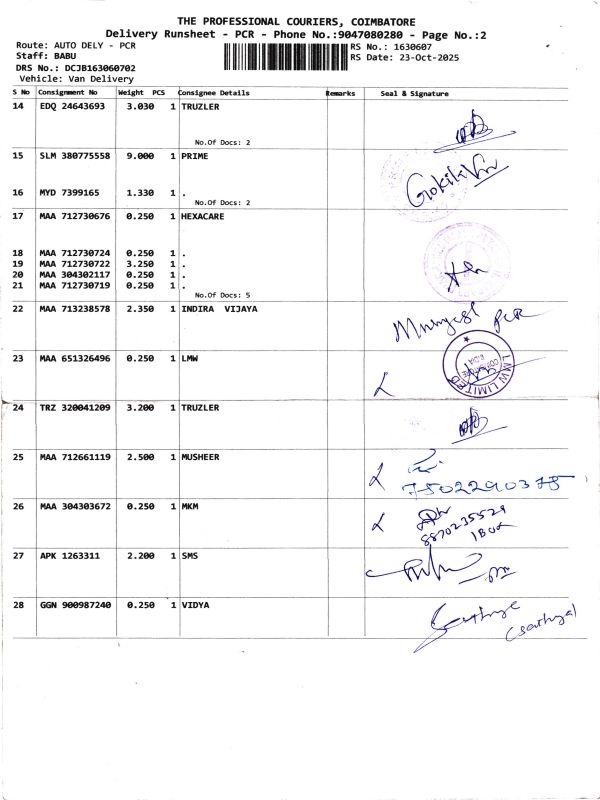 THE PROFESSIONAL COURIERS, COIMBATORE
Delivery Runsheet - PCR - Phone No.:9047080280 - Page No.:2
Route: AUTO DELY - PCR
RS No.: 1630607
Staff: BABU
RS Date: 23-Oct-2025
DRS No.: DCJB163060702
Vehicle: Van Delivery
S No Consignment No Weight PCS Consignee Details Remarks Seal & Signature
14 EDQ 24643693 3.030 1 TRUZLER
No.Of Docs: 2
15 SLM 380775558 9.000 1 PRIME
Gokila
16 MYD 7399165 1.330 1 .
No.Of Docs: 2
17 MAA 712730676 0.250 1 HEXACARE
18 MAA 712730724 0.250 1 .
19 MAA 712730722 3.250 1 .
20 MAA 304302117 0.250 1 .
21 MAA 712730719 0.250 1 .
No.Of Docs: 5
22 MAA 713238578 2.350 1 INDIRA VIJAYA
PCR
23 MAA 651326496 0.250 1 LMW
LMW LIMITED
COIMBATORE
INDIA
24 TRZ 320041209 3.200 1 TRUZLER
25 MAA 712661119 2.500 1 MUSHEER
7502290375
26 MAA 304303672 0.250 1 MKM
8870235529
1 Box
27 APK 1263311 2.200 1 SMS
28 GGN 900987240 0.250 1 VIDYA